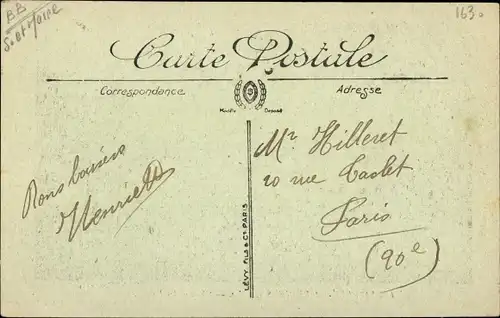 BB
S. et Marne
163.
Carte Postale
Correspondance
Adresse
Modèle Déposé
Bons baisers
Henriette
Mr Hilleret
20 rue Taclet
Paris
(20e)
LÉVY FILS & Cie PARIS